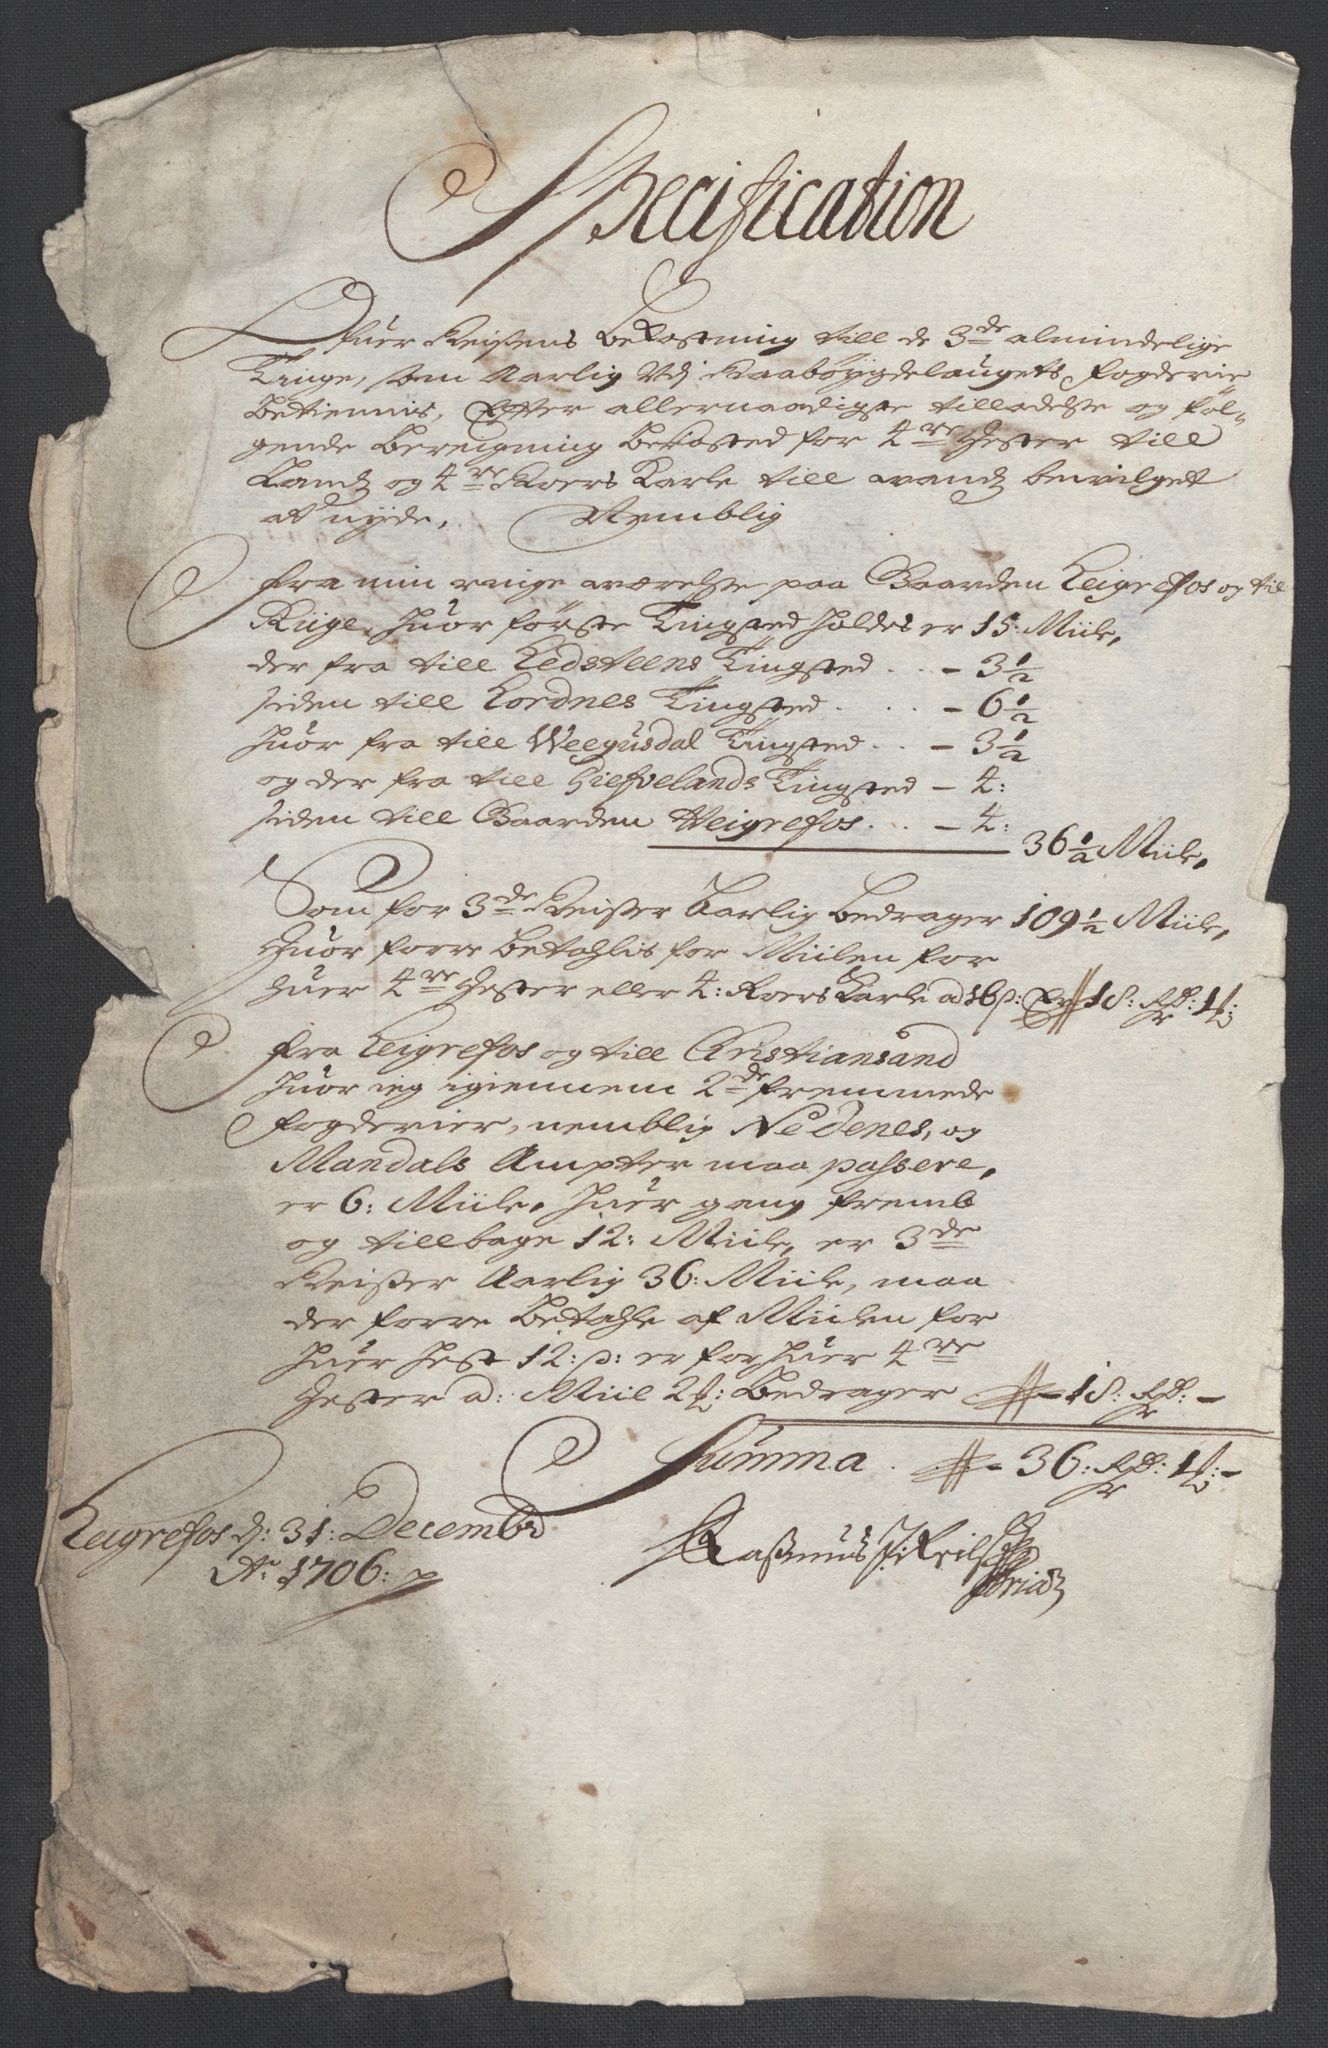 Specification
Ofuer Reisens bekostning till de 3de almindelige
Tinge, som Aarlig Udj Raabøygdelaugets fogderie
betiennis, Efter allernaadigste tilladelse og føl-
gende bereigning bekosted for 4re Hester till
Landz og 4re Roers Karle till vandz bevilget
at nyde, Nemblig
Fra min ringe værelse paa Gaarden Leigrefos og til
Riige, huor første Tingsted holdes er 15: Miile,
der fra till Ledsteens Tingsted - 3½
siden till Hordnes Tingsted - 6½
huor fra till Weegusdal Tingsted - 3½
og der fra till Hiefvelands Tingsted - 4:
siden till Gaarden Weigrefos - 4:
36½ Miile,
Som for 3de Reiser Aarlig bedrager 109½ Miile,
huor forre betahlis for Miilen for
huer 4re Hester eller 4: Roers Karle ad 16 s: Er 18: Rdr: 1 ß:
Fra Leigrefos og till Christiansand
huor ieg igiennem 2de fremmede
fogderier, nemblig Nedenes, og
Mandals Ampter maa passere,
er 6: Miile, huer gang fremb
og tillbage 12: Miile, er 3de
Reiser Aarlig 36: Miile, maa
der forre betahle af Miilen for
huer Hest 12: s: er for huer 4re
Hester ad: Miil 2 ß: bedrager - 18: Rdr: -
Summa - 36: Rdr: 1 ß: -
Leigrefos d: 31: Decembr
Ao 1706: p
Rasmus